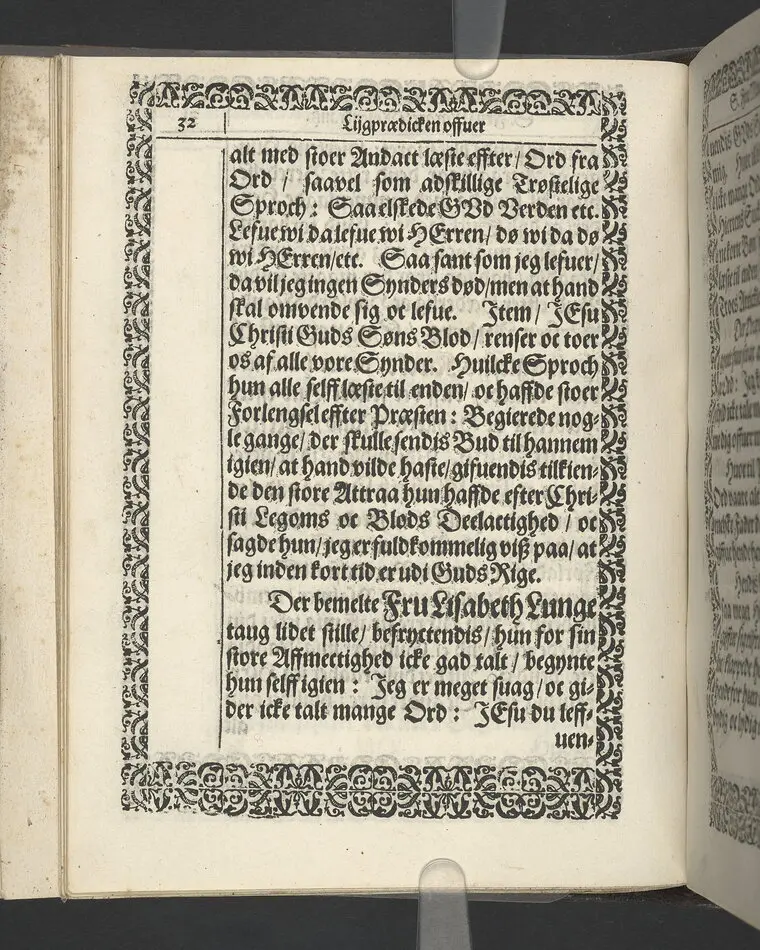 32
Lijgprædicken offuer
alt med stoer Andact læste effter / Ord fra
Ord / saavel som adskillige Trøstelige
Sproch : Saa elskede GVd Verden etc.
Lefue wi da lefue wi HErren / dø wi da dø
wi HErren / etc. Saa sant som jeg lefuer /
da vil jeg ingen Synders død / men at hand
skal omvende sig oc lefue. Item / JEsu
Christi Guds Søns Blod / renser oc toer
os af alle vore Synder. Huilcke Sproch
hun alle self læste til enden / oc haffde stoer
Forlengsel effter Præsten : Begierede nog-
le gange / der skulle sendis Bud til hannem
igien / at hand vilde haste / gifuendis tilkien-
de den store Attraa hun haffde efter Chri-
sti Legoms oc Blods Deelactighed / oc
sagde hun / jeg er fuldkommelig viß paa / at
jeg inden kort tid er udi Guds Rige.
Der bemelte Fru Lisabeth Lunge
taug lidet stille / befryctendis / hun for sin
store Affmectighed icke gad talt / begynte
hun self igien : Jeg er meget suag / oc gi-
der icke talt mange Ord : JEsu du leff-
uen-